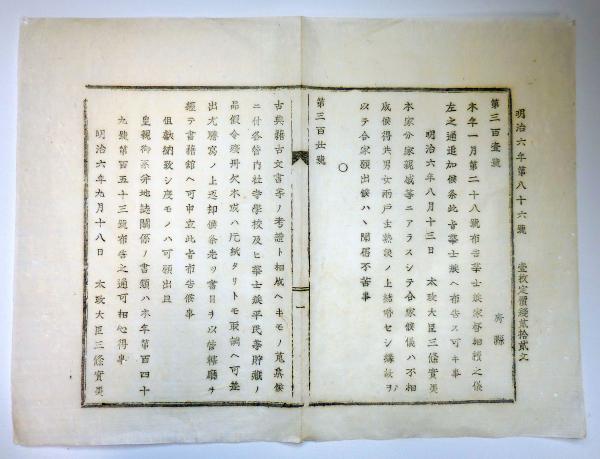 明治六年第八十六號　壹枚定價錢貳拾貳文
第三百壹號　府縣
本年一月第二十八號布告華士族家督相續之儀
左之通追加候条此旨華士族ヘ布告ス可キ事
明治六年八月十三日　太政大臣三條實美
本家分家親戚等ニアラスシテ合家候儀ハ不相
成候得共男女両戸主熟談ノ上結婚セシ縁故ヲ
以テ合家願出候ハヽ聞届不苦事
〇
第三百廿號
古典籍古文書等ノ考證ト相成ヘキモノ蒐集候
ニ付各管内社寺學校及ヒ華士族平民等貯蔵ノ
品假令残册欠本或ハ片紙タリトモ取調ヘ可差
出尤謄寫ノ上返却候条先ツ書目ヲ以管轄廳ヲ
經テ書籍館ヘ可申立此旨布告候事
但獻納致シ度モノハ可願出且
皇親御系并地誌關係ノ書類ハ本年第百四十
九號第百五十三號布告之通可相心得事
明治六年九月十八日　太政大臣三條實美
一